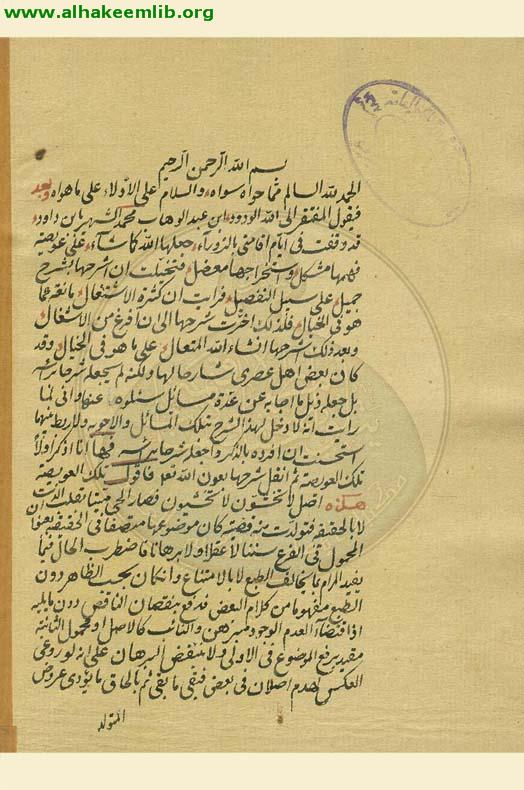 www.alhakeemlib.org
بسم الله الرحمن الرحيم
الحمد لله السالم مما حواه سواه والسلام على الأدلاء على ما هواه وبعد
فيقول المفتقر الى الله الودود ابن عبد الوهاب محمد الشهير بابن داود
قد وقفت في ايام اقامتي بالزوراء جعلها الله كما شاء على عويصة
فهمها مشكل واستخراجها معضل فتخيلت ان اشرحها بشرح
جميل على سبيل التفصيل فرايت ان كثرة الاشتغال مانعة عما
هو في الخيال فلذلك اخرت شرحها الى ان أفرغ من الاشغال
وبعد ذلك اشرحها انشاء الله المتعال على ما هو في الخيال وقد
كان بعض اهل عصري شارحا لها ولكنه لم يجعله شرحا برأسه
بل جعله ذيل ما اجاب به عن عدة مسائل سئلوه عنها واني لما
رايت انه لا دخل لهذا الشرح بتلك المسائل والاجوبة ولا ربط بينهما
استحسنت ان افرده بالذكر واجعله شرحا برأسه فها انا اذكر اولا
تلك العويصة ثم انقل شرحها بعون الله تعالى فاقول تلك العويصة
هكذه اصل لا تخشون لا تخشيون فصار الحي ميتا تقلت الميت
لا بالحقيقة فتولدت منه قضية كان موضوعها متصفا في الحقيقة بعض
المحمول في الفرع سننا لا عقلا ولا برهانا فاضطرب الحال فيما
يفيد المرام بما يخالف الطبع لا بالامتناع وان كان بحسب الظاهر دون
الطبع مفهوما من كلام البعض فدفع بنقصان الناقص دون ما يليه
اذ اقتضاء العدم الوجود مبرهن والنائب كالاصل او محمول الثانية
مقيد برفع الموضوع في الاولى ولا منتقض البرهان على انه لو روعى
العكس لهدم اصلان في بعض فبقي ما بقي ثم بالحاق ما يؤدى عروض
المتولد